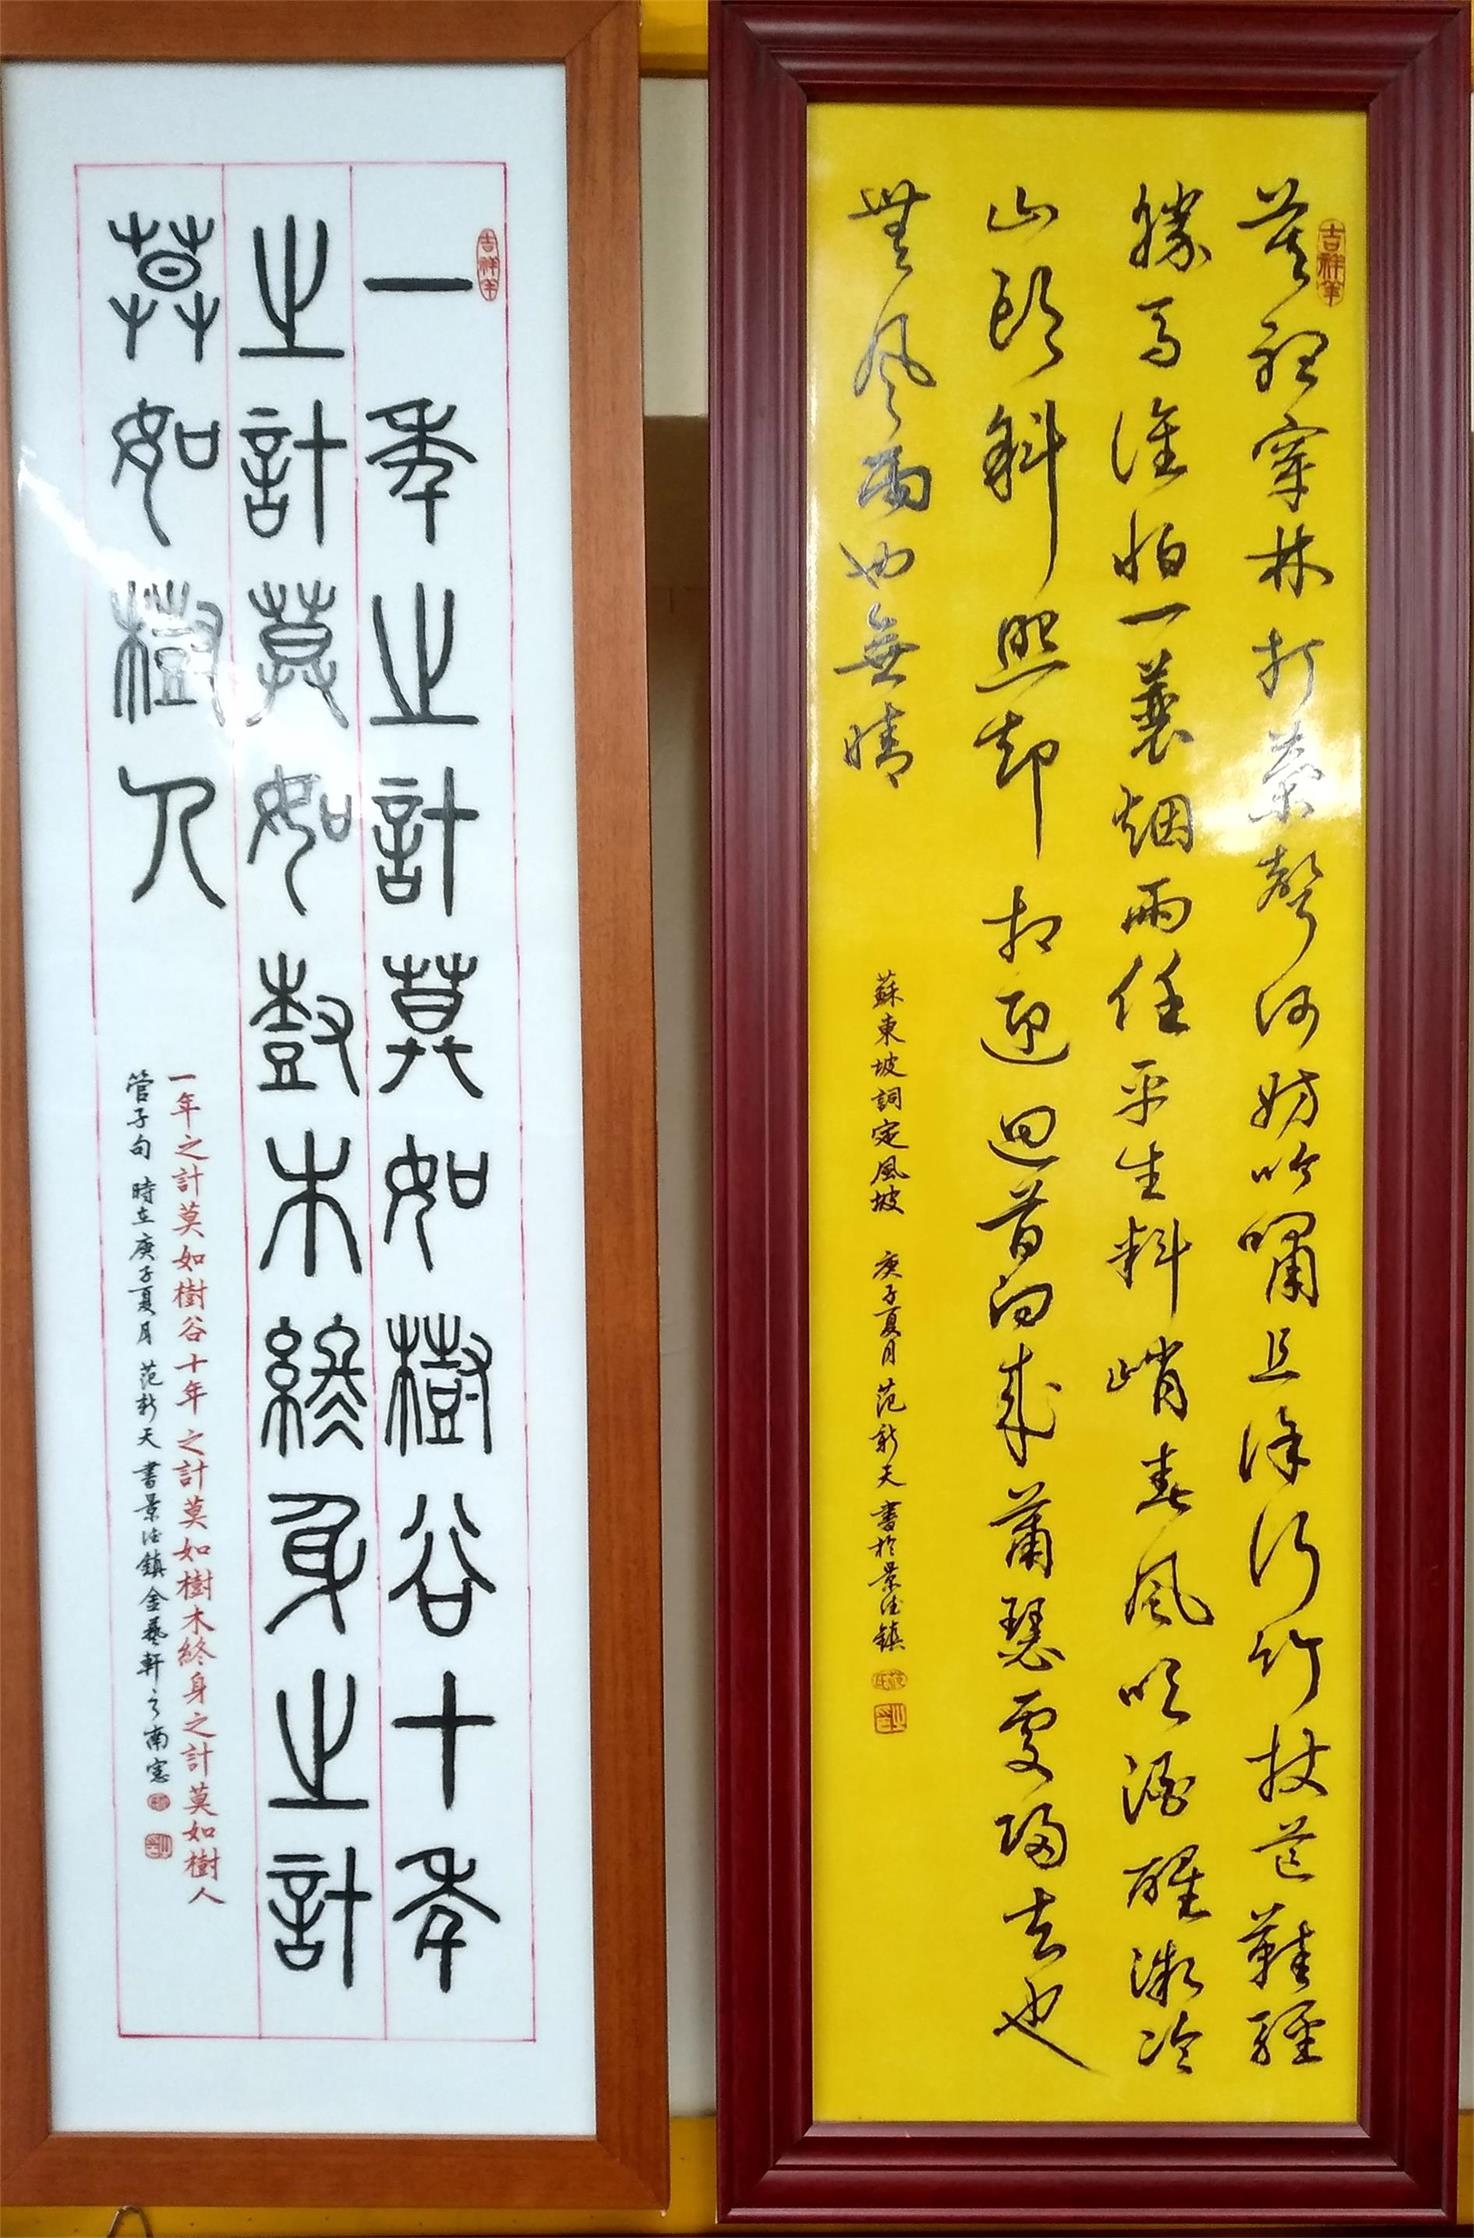 吉祥羊
一年之計莫如樹谷十年
之計莫如樹木終身之計
莫如樹人
一年之計莫如樹谷十年之計莫如樹木終身之計莫如樹人
管子句 時在庚子夏月 范新天書景德鎮金藝軒之南窓
吉祥羊
莫聽穿林打葉聲何妨吟嘯且徐行竹杖芒鞋輕
勝馬誰怕一蓑烟雨任平生料峭春風吹酒醒微冷
山頭斜照却相迎迴首向來蕭瑟處歸去也
無風雨也無晴
蘇東坡詞定風坡 庚子夏月 范新天書於景德鎮